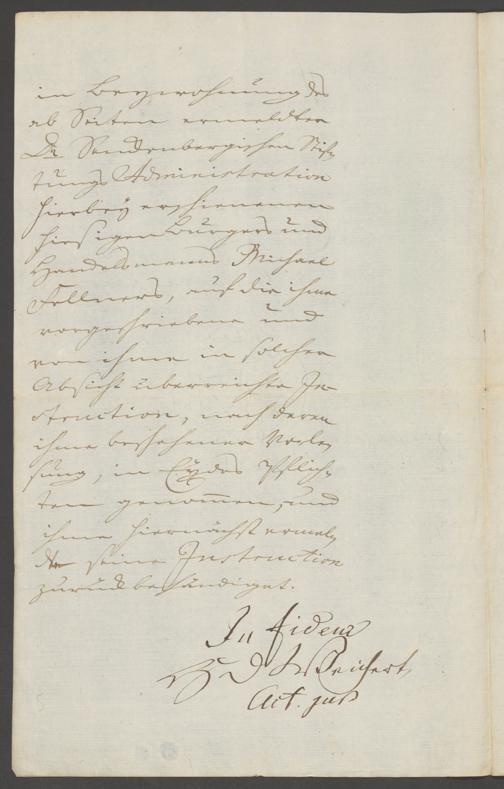 in Beywohnung des
ab Seiten ermeldter
Dr Senckenbergischen Stif-
tungs Administration
hierbey erschienenen
hiesigen Burgers und
Handelsmanns Michael
Fellners, auf die ihme
vorgeschriebene und
von ihme in solcher
Absicht überreichte In-
struction, nach deren
ihme beschehener Verle-
sung, in Eydes Pflich-
ten genommen, und
ihme hiernächst ermel-
dte seine Instruction
zurück behändiget.
In fidem
Reichert
Act. jur